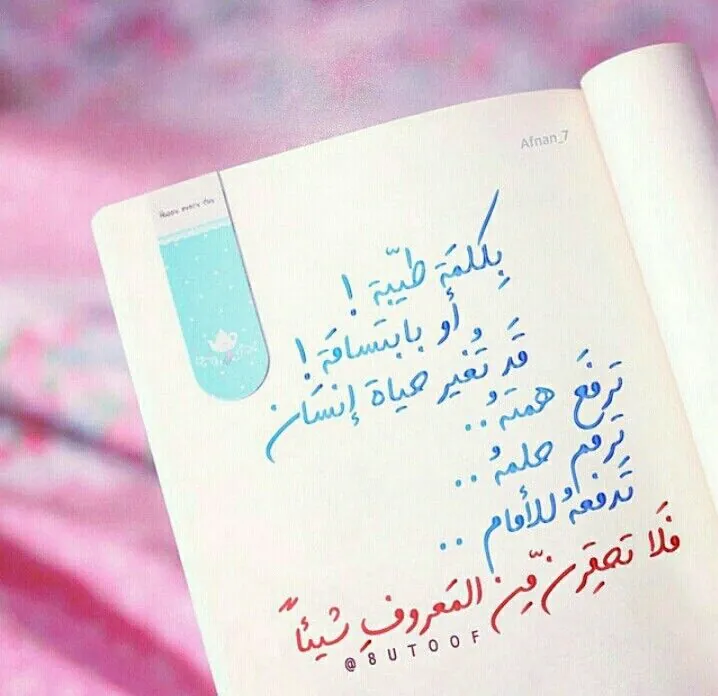 Afnan_7
Happy every day
بِكلمَة طيّبة !
أو بابتسامَة !
قَد تُغير حياة إنسَان
تَرفَع همتهُ ..
تِرمم حلمهُ ..
تَدفعهُ للأمام ..
فَلا تحقِرن مّن المَعروفِ شيئاً
@8UTOOF